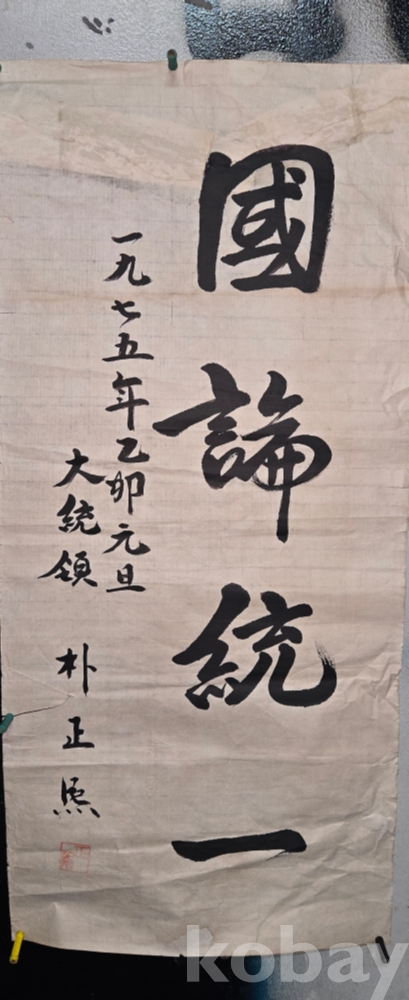 國論統一
一九七五年乙卯元旦
大統領 朴正熙
kobay